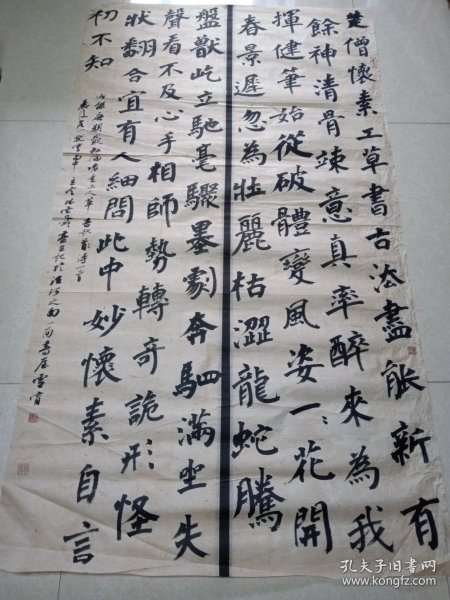 楚僧懷素工草書古法盡能新有
餘神清骨竦意真率醉來為我
揮健筆始從破體變風姿一:花開
春景遲忽為壯麗枯澀龍蛇騰
盤獸屹立馳毫驟墨劇奔駟滿坐失
聲看不及心手相師勢轉奇詭形怪
狀翻合宜有人細問此中妙懷素自言
初不知
孔夫子旧书网
www.kongfz.com